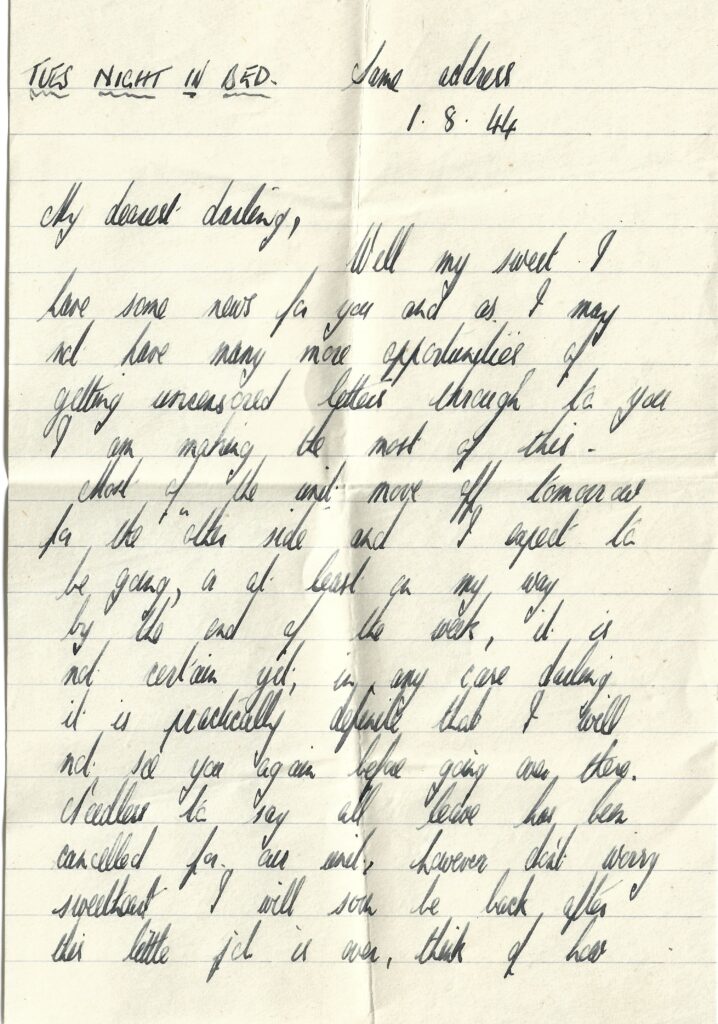 TUES NIGHT IN BED. Same address
1. 8. 44
My dearest darling,
Well my sweet I
have some news for you and as I may
not have many more opportunities of
getting uncensored letters through to you
I am making the most of this -
Most of the unit move off tomorrow
for the "other side" and I expect to
be going, or at least on my way
by the end of the week, it is
not certain yet, in any case darling
it is practically definite that I will
not see you again before going over there.
Needless to say all leave has been
cancelled for our unit, however don't worry
sweetheart I will soon be back after
this little job is over, think of how